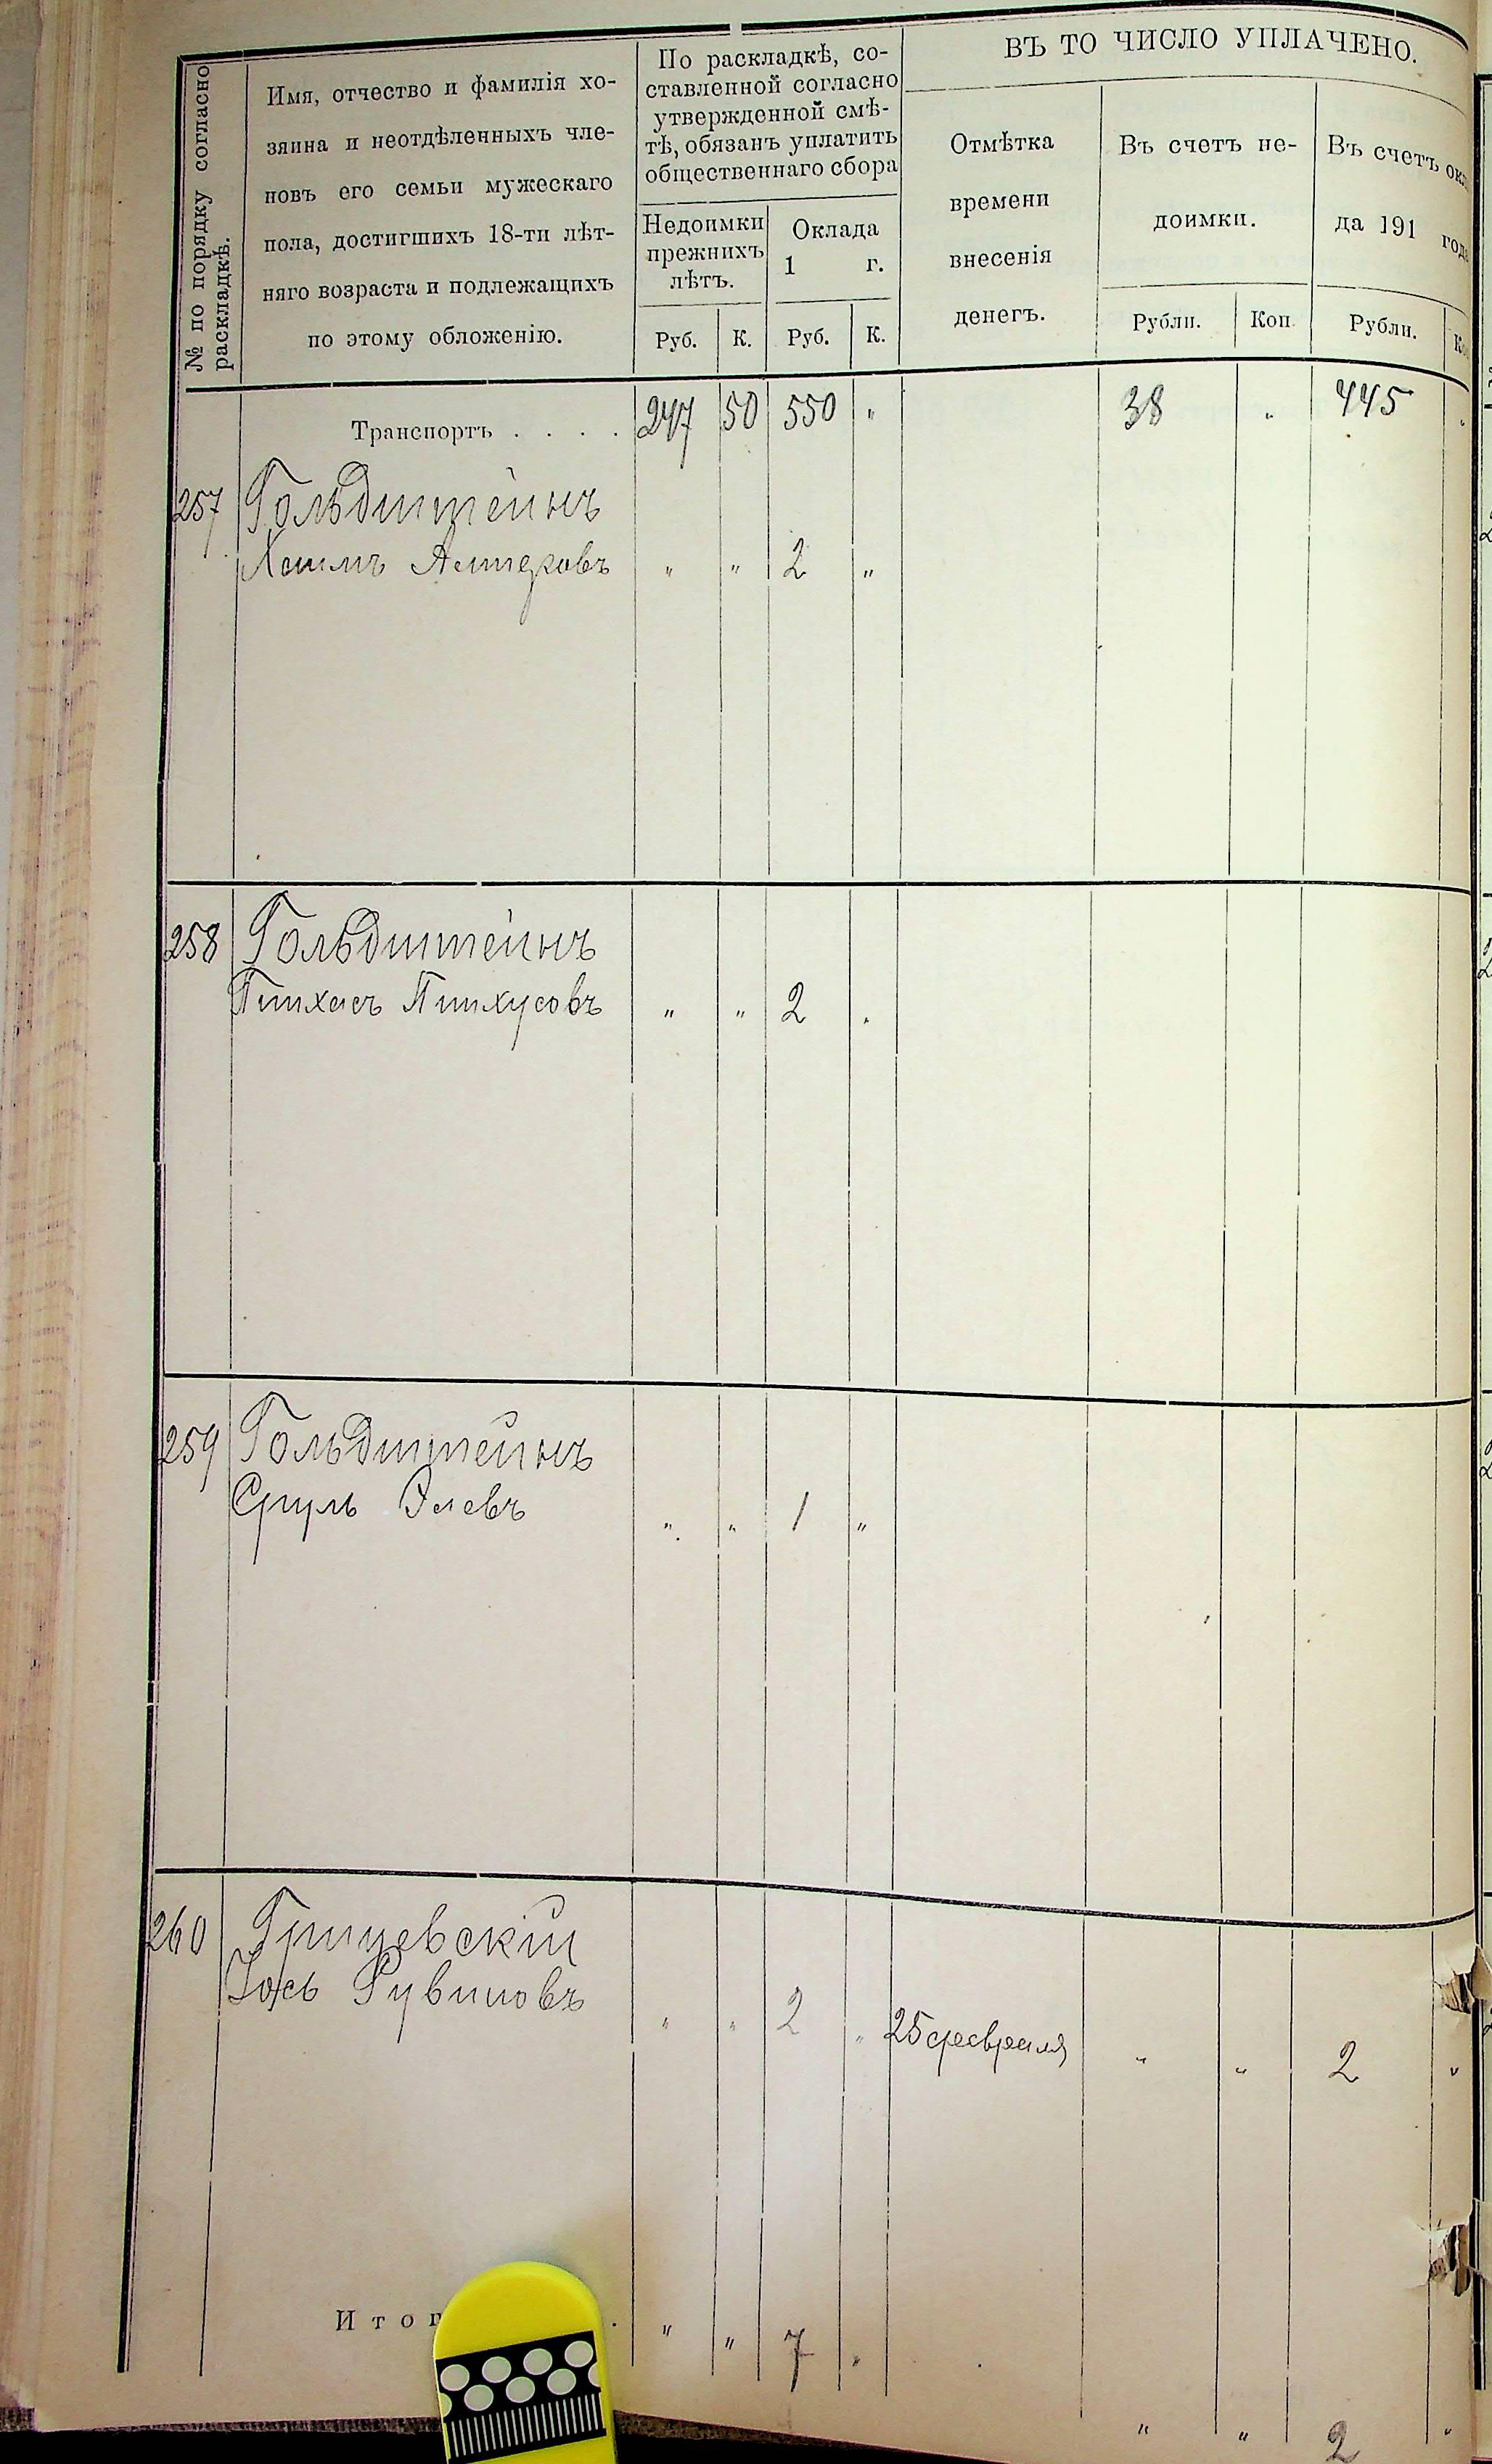 № по порядку согласно
раскладкѣ.
Имя, отчество и фамилія хо-
зяина и неотдѣленныхъ чле-
новъ его семьи мужескаго
пола, достигшихъ 18-ти лѣт-
няго возраста и подлежащихъ
по этому обложенію.
По раскладкѣ, со-
ставленной согласно
утвержденной смѣ-
тѣ, обязанъ уплатить
общественнаго сбора
Недоимки
прежнихъ
лѣтъ.
Оклада
1 г.
Руб. К. Руб. К.
ВЪ ТО ЧИСЛО УПЛАЧЕНО.
Отмѣтка
времени
внесенія
денегъ.
Въ счетъ не-
доимки.
Рубли. Коп.
Въ счетъ окл
да 191 года
Рубли. Ко
Транспортъ . . . . 247 50 550 " 38 " 445 "
257 Гольдштейнъ
Хаимъ Алтеровъ " " 2 "
258 Гольдштейнъ
Пинхасъ Пинхусовъ " " 2 "
259 Гольдштейнъ
Сруль Элевъ " " 1 "
260 Грицевскій
Іось Рувиновъ " " 2 " 25 февраля " " 2 "
Итог . " " 7 "
" " 2 "